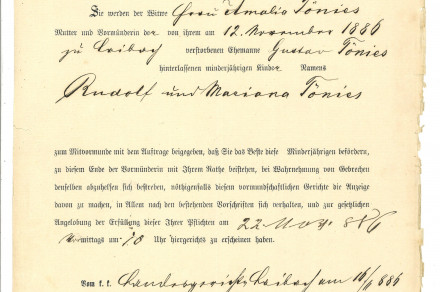 Sie werden der Witwe Frau Amalia Tönies
Mutter und Vormünderin der von ihrem am 12. November 1886
zu Laibach verstorbenen Ehemanne Gustav Tönies
hinterlassenen minderjährigen Kinder Namens
Rudolf und Mariana Tönies
zum Mitvormunde mit dem Auftrage beigegeben, daß Sie das Beste diese Minderjährigen befördern,
zu diesem Ende der Vormünderin mit Ihrem Rathe beistehen, bei Wahrnehmung von Gebrechen
denselben abzuhelfen sich bestreben, nöthigenfalls diesem vormundschaftlichen Gerichte die Anzeige
davon zu machen, in Allem nach den bestehenden Vorschriften sich verhalten, und zur gesetzlichen
Angelobung der Erfüllung dieser Ihrer Pflichten am 22
mittags um 10 Uhr hiergerichts zu erscheinen haben.
Vom k. k. Landesgerichte Laibach am